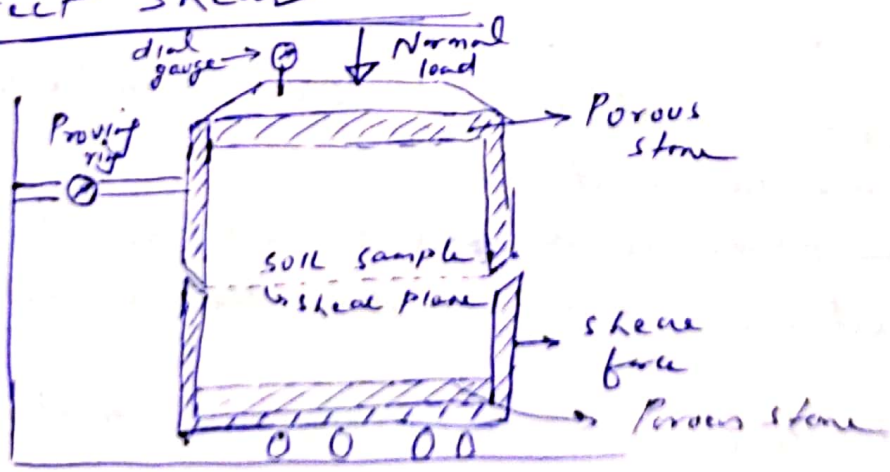 dial
gauge →
Normal
load
Proving
ring
Porous
stone
soil sample
shear plane
shear
force
Porous stone